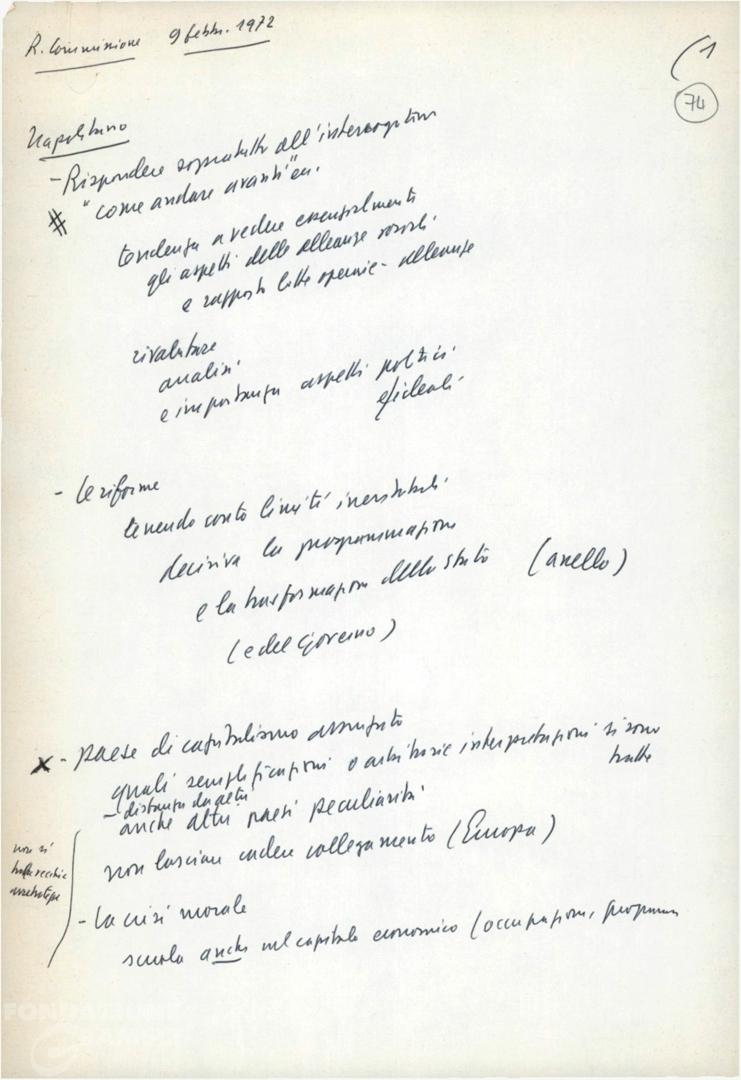 R. Commissione 9 febbr. 1972
(1
74
Napolitano
- Rispondere sopratutto all'interrogativo
# "come andare avanti" ecc.
tendenza a vedere essenzialmente
gli aspetti delle alleanze sociali
e rapporto lotte operaie - alleanze
rivalutare
analisi
e importanza aspetti politici
e ideali
- le riforme
tenendo conto limiti inevitabili
decisiva la programmazione
e la trasformazione dello stato (anello)
(e del Governo)
x - paese di capitalismo avanzato
quali semplificazioni o arbitrarie interpretazioni si sono
tratte
- distanza da
anche altri paesi peculiarità
non lasciar cadere collegamento (Europa)
non si
tratta vecchie
- la crisi morale
scuola anche nel capitolo economico (occupazione, programm
FONDAZIONE
GRAMSCI